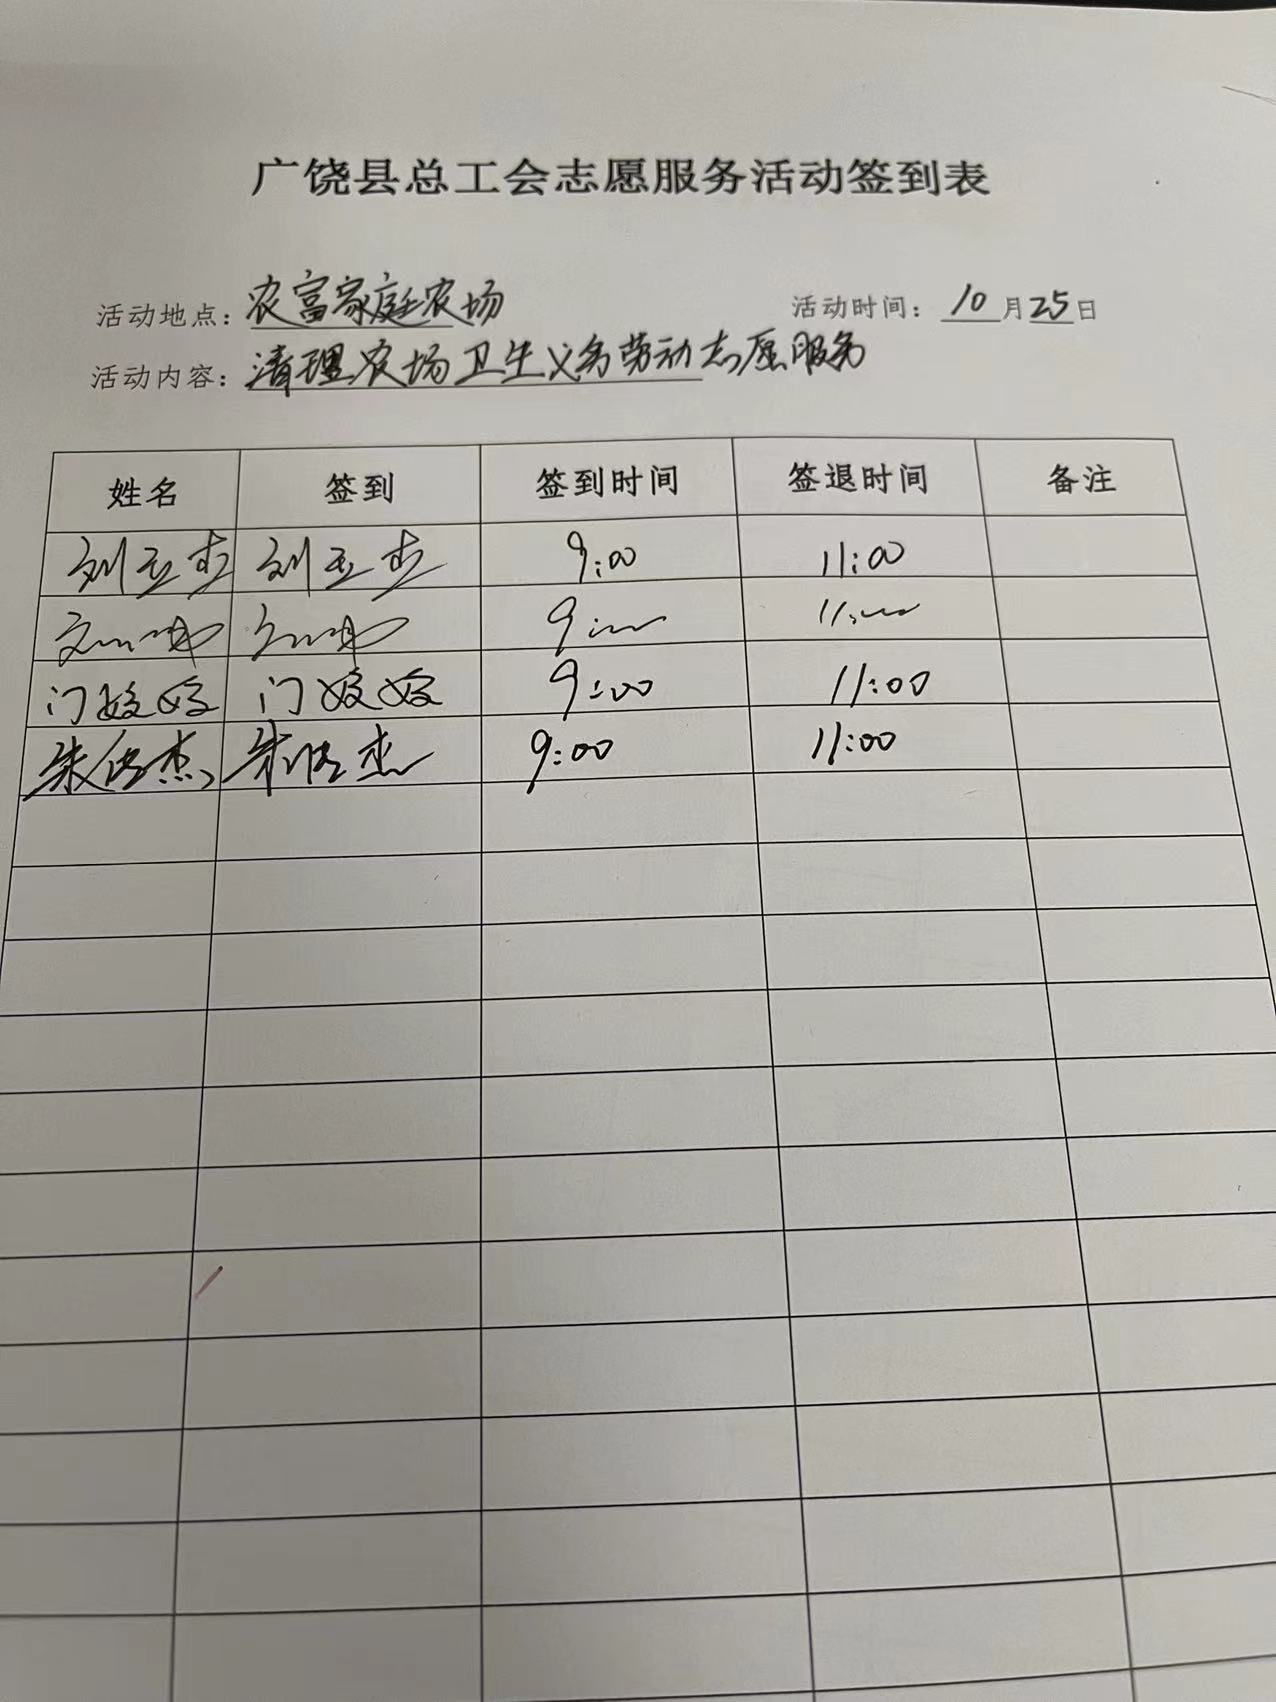 广饶县总工会志愿服务活动签到表
活动地点：农富家庭农场 活动时间：10月25日
活动内容：清理农场卫生义务劳动志愿服务
姓名 签到 签到时间 签退时间 备注
刘 刘 9:00 11:00
9:00 11:00
门姣姣 门姣姣 9:00 11:00
朱 杰 朱 杰 9:00 11:00